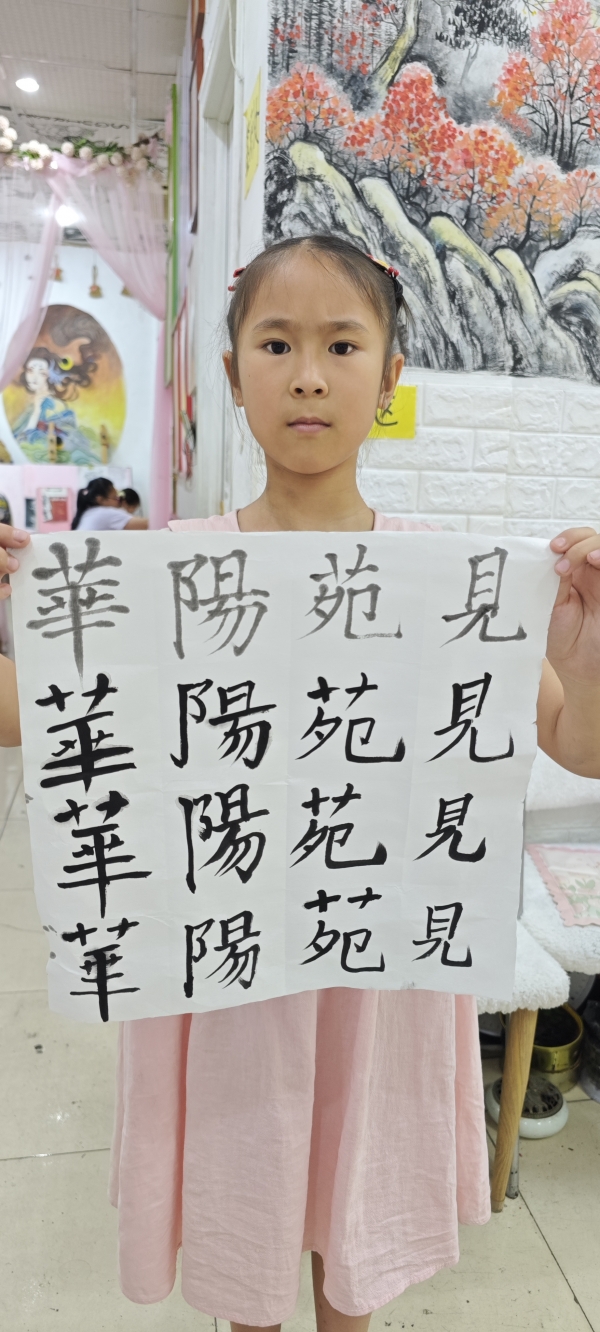 華陽苑見
華陽苑見
華陽苑見
華陽苑見